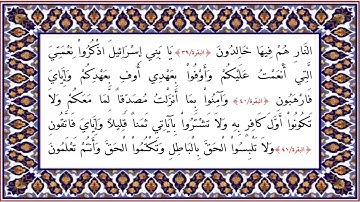 النَّارِ هُمْ فِيهَا خَالِدُونَ ﴿البقرة/٣٩﴾ يَا بَنِي إِسْرَائِيلَ اذْكُرُواْ نِعْمَتِيَ
الَّتِي أَنْعَمْتُ عَلَيْكُمْ وَأَوْفُواْ بِعَهْدِي أُوفِ بِعَهْدِكُمْ وَإِيَّايَ
فَارْهَبُونِ ﴿البقرة/٤٠﴾ وَآمِنُواْ بِمَا أَنزَلْتُ مُصَدِّقاً لِّمَا مَعَكُمْ وَلاَ
تَكُونُواْ أَوَّلَ كَافِرٍ بِهِ وَلاَ تَشْتَرُواْ بِآيَاتِي ثَمَناً قَلِيلاً وَإِيَّايَ فَاتَّقُونِ
﴿البقرة/٤١﴾ وَلاَ تَلْبِسُواْ الْحَقَّ بِالْبَاطِلِ وَتَكْتُمُواْ الْحَقَّ وَأَنتُمْ تَعْلَمُونَ